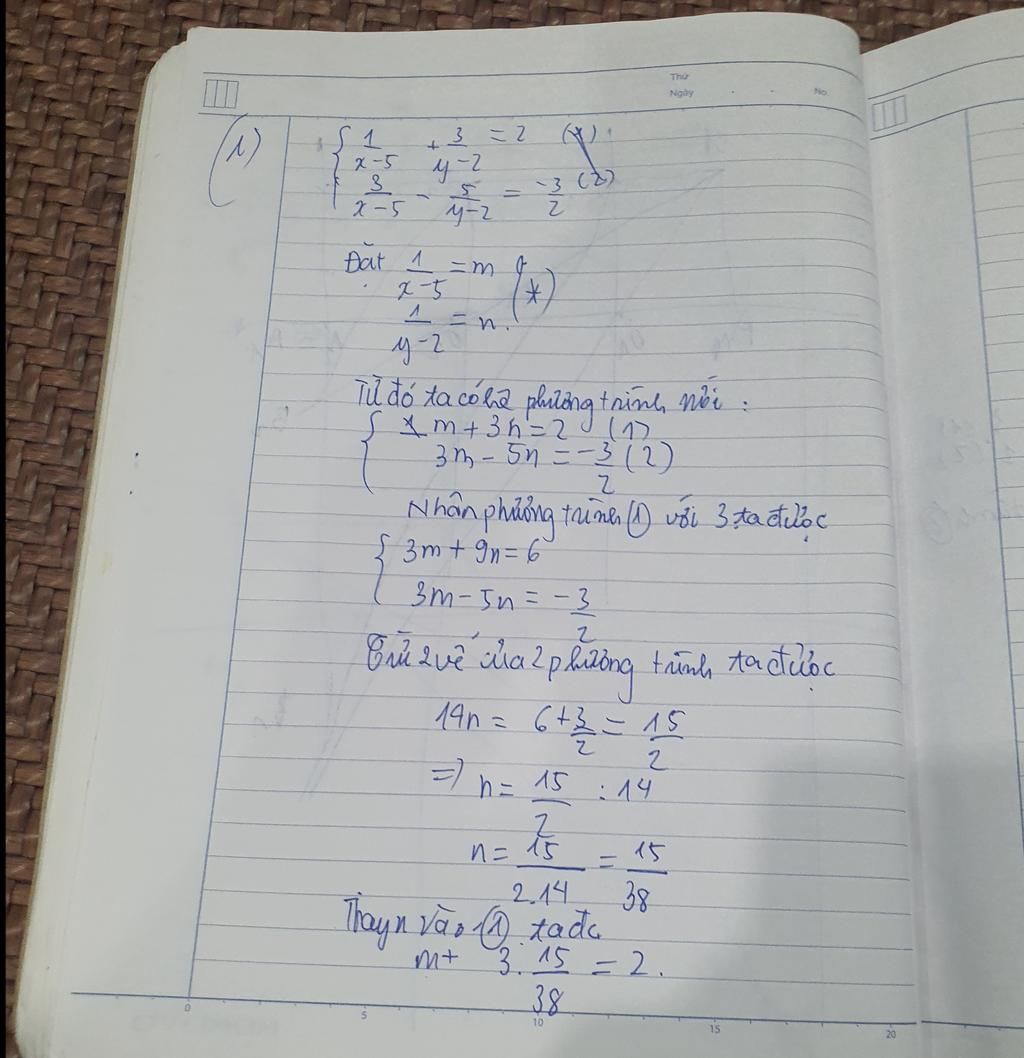 Thứ
Ngày . . No.
(1) { 1/(x-5) + 3/(y-2) = 2 (1)
3/(x-5) - 5/(y-2) = -3/2 (2)
Đặt 1/(x-5) = m
(*)
1/(y-2) = n.
Từ đó ta có hệ phương trình mới :
{ 1m + 3n = 2 (1)
3m - 5n = -3/2 (2)
Nhân phương trình (1) với 3 ta được
{ 3m + 9n = 6
3m - 5n = -3/2
Trừ 2 vế của 2 phương trình ta được
14n = 6 + 3/2 = 15/2
=) n = 15/2 : 14
n = 15/2.14 = 15/38
Thay n vào (1) ta đc
m + 3. 15/38 = 2.
0 5 10 15 20